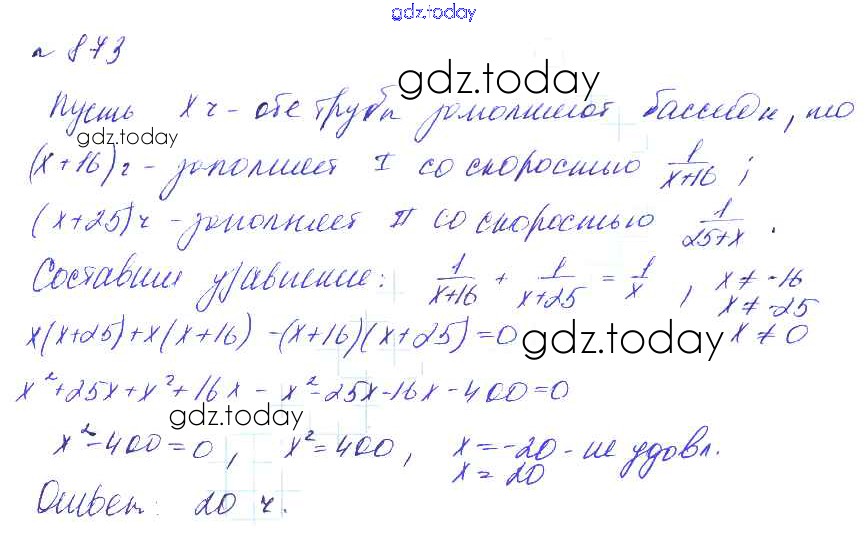 gdz.today
№ 873
gdz.today
Пусть x ч - обе трубы заполняют бассейн, то
gdz.today
(x+16) ч - заполняет I со скоростью 1/(x+16) ;
(x+25) ч - заполняет II со скоростью 1/(25+x) .
Составим уравнение: 1/(x+16) + 1/(x+25) = 1/x , x ≠ -16
x ≠ -25
x(x+25)+x(x+16) -(x+16)(x+25)=0 x ≠ 0
gdz.today
x²+25x+x²+16x - x²-25x-16x-400=0
gdz.today
x²-400=0, x²=400, x=-20 - не удовл.
x = 20
Ответ: 20 ч.